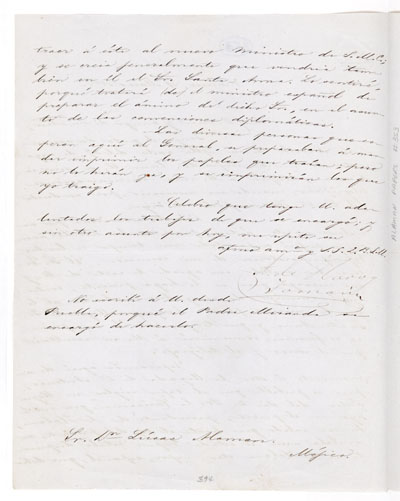 traer á éste al nuevo Ministro de S.M.C.
y se creia generalmente que vendria tam-
bien en él el Sor Santa-Anna. Lo sentiré
porqué tratará (de) el ministro español de
preparar el ánimo de dicho Sr. en el asun-
to de las convenciones diplomáticas.
Las diversas personas que es-
peran aquí al General, se preparaban á man-
dar imprimir los papeles que traían; pero
no lo harán ya, y se imprimirán los que
yo traigo.
Celebro que tenga U. ade-
lantados los trabajos de que se encargó; y
sin otro asunto por hoy, me repito su
afmo. amo. y S.S.Q.B.S.M.
No escribí á U. desde
Puebla, porqué el Padre Miranda se
encargó de hacerlo.
Sr. Dn. Lúcas Alaman.
Méjico.